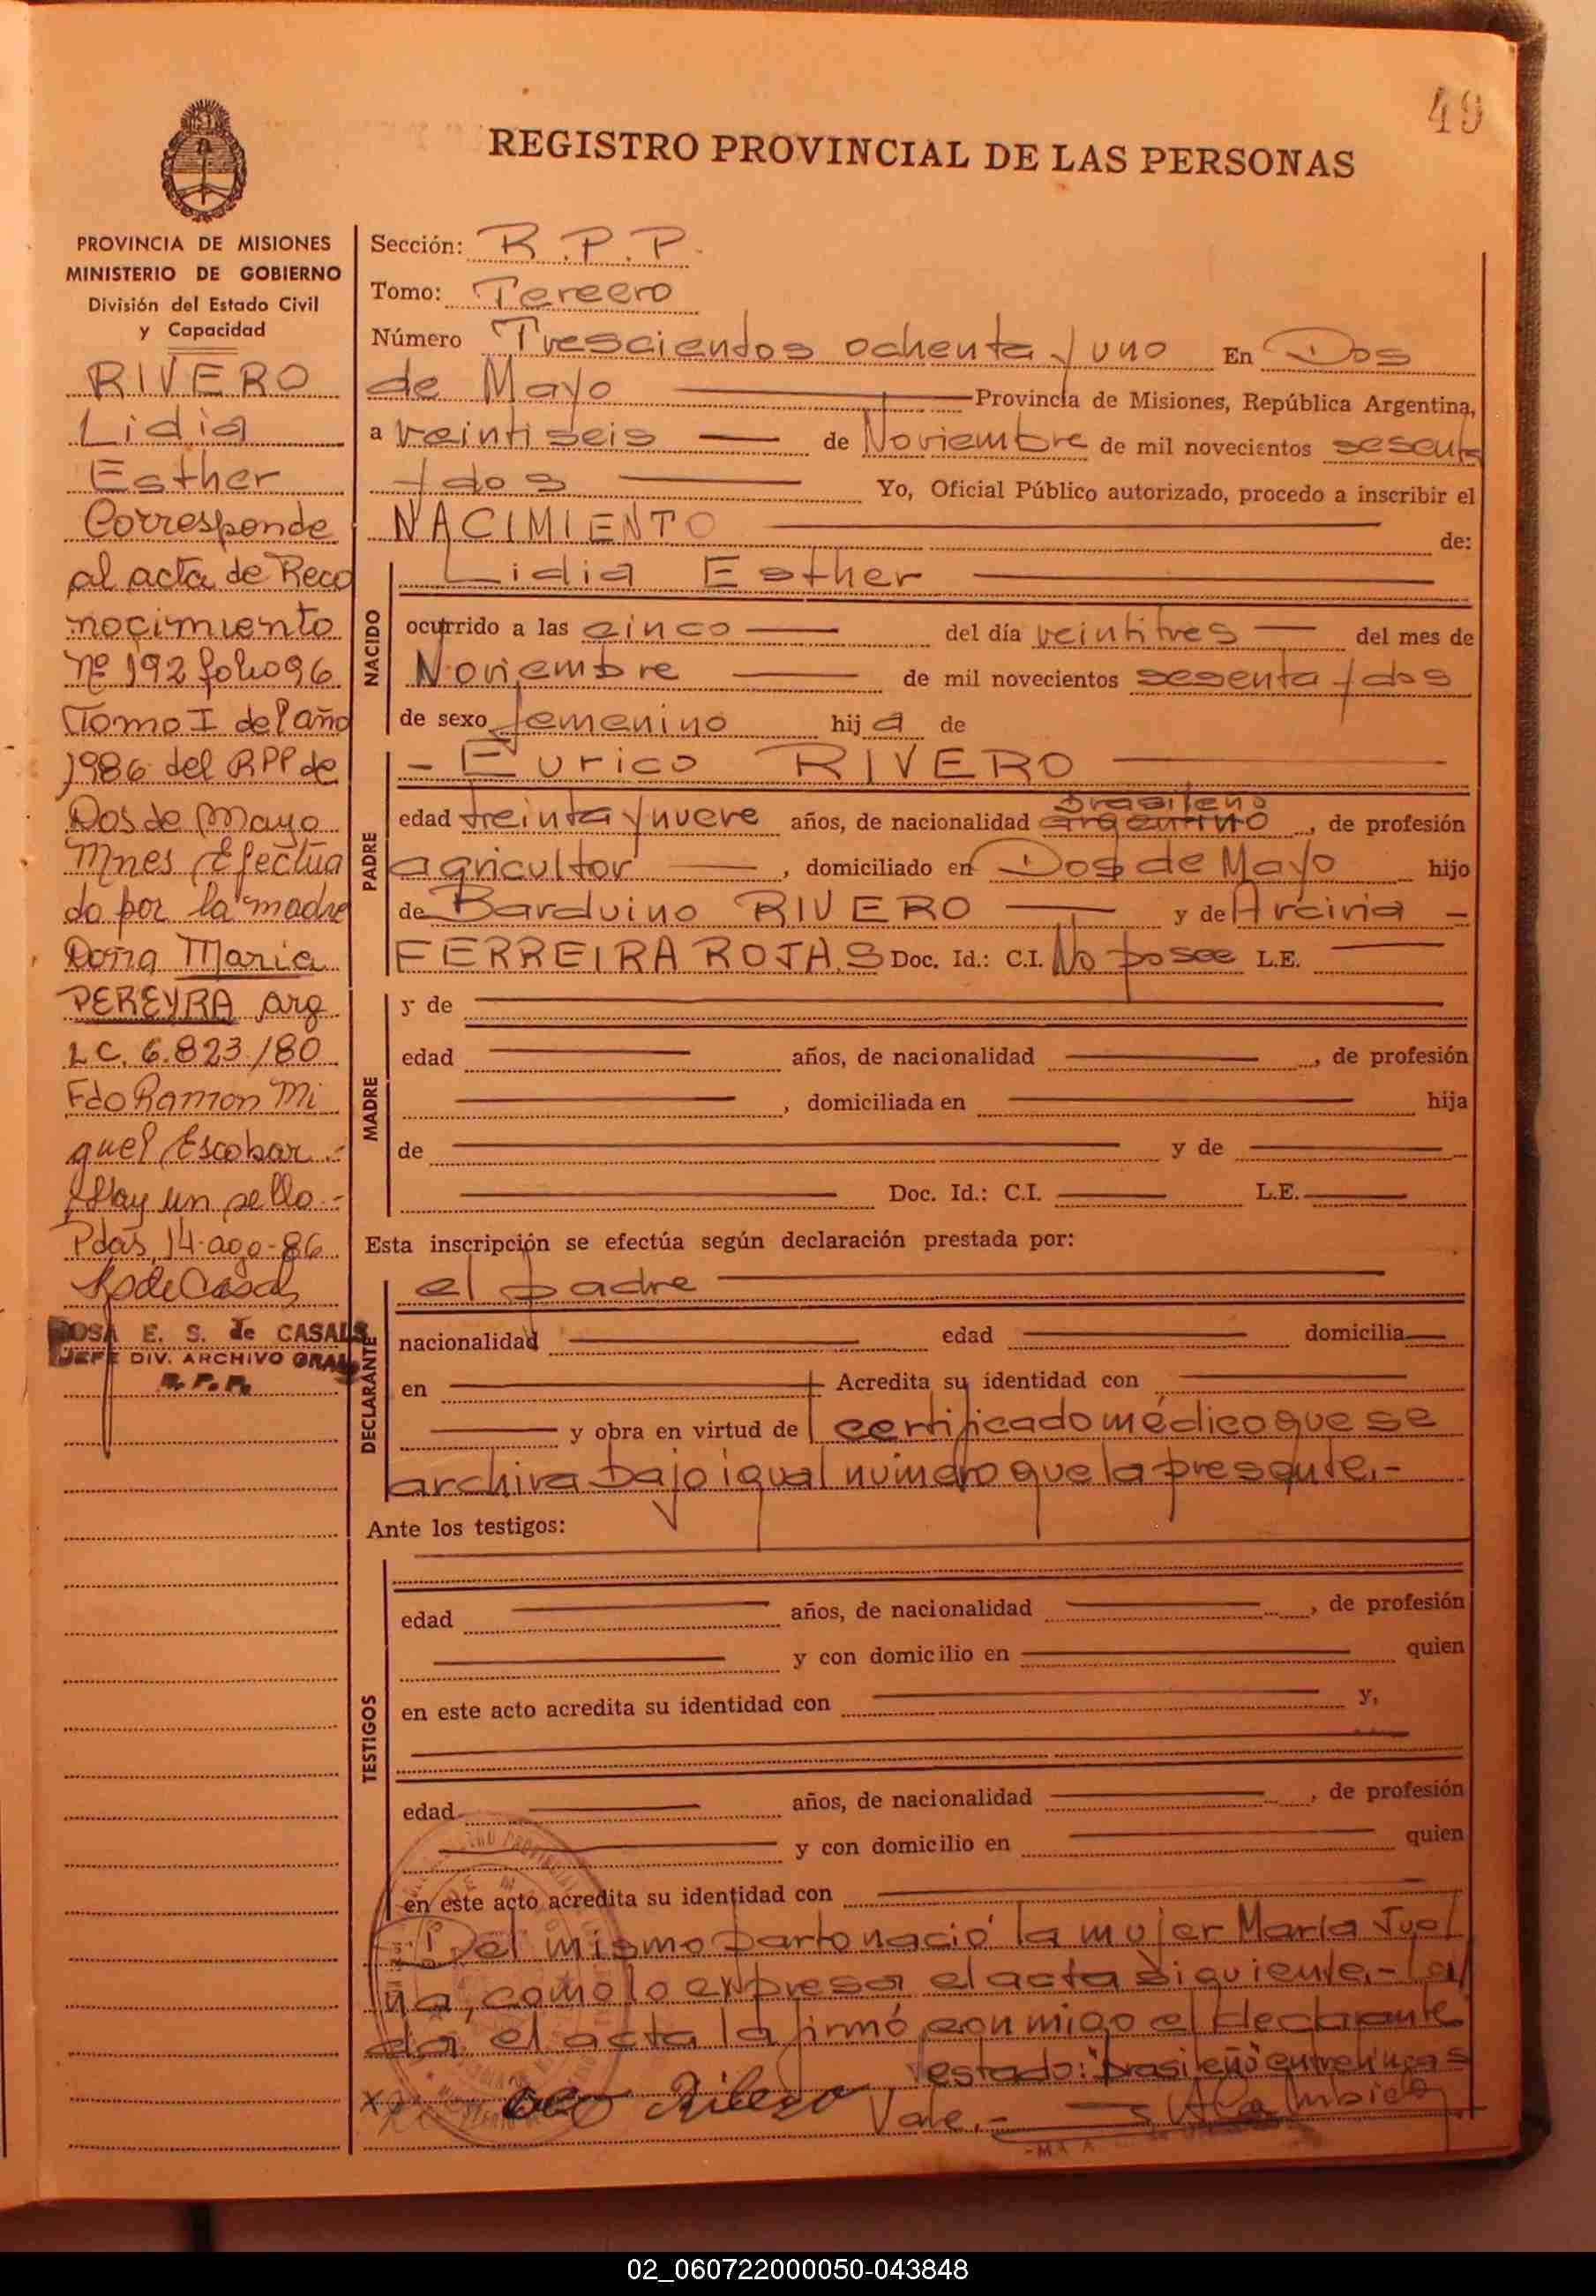 49
REGISTRO PROVINCIAL DE LAS PERSONAS
PROVINCIA DE MISIONES
MINISTERIO DE GOBIERNO
División del Estado Civil
y Capacidad
RIVERO
Lidia
Esther
Corresponde
al acta de Reco
nocimiento
Nº 192 folio 96
Tomo I del año
1986 del RPP de
Dos de Mayo
Mnes Efectua
do por la madre
Doña Maria
PEREYRA arg
LC. 6.823/80
Fdo Ramon Mi
guel Escobar.-
Hay un sello.-
Pdas, 14-ago-86
ROSA E. S. de CASALS
JEFE DIV. ARCHIVO GRAL
R.P.P.
Sección: R.P.P.
Tomo: Tercero
Número Trescientos ochenta y uno En Dos
de Mayo Provincia de Misiones, República Argentina,
a veintiseis de Noviembre de mil novecientos sesenta
y dos Yo, Oficial Público autorizado, procedo a inscribir el
NACIMIENTO de:
NACIDO
Lidia Esther
ocurrido a las cinco del día veintitres del mes de
Noviembre de mil novecientos sesenta y dos
de sexo femenino hija de
PADRE
- Eurico RIVERO
brasileño
edad treinta y nueve años, de nacionalidad argentino, de profesión
agricultor, domiciliado en Dos de Mayo hijo
de Barduino RIVERO y de Arciria
FERREIRA ROJAS Doc. Id.: C.I. No posee L.E.
MADRE
y de
edad años, de nacionalidad , de profesión
, domiciliada en hija
de y de
Doc. Id.: C.I. L.E.
Esta inscripción se efectúa según declaración prestada por:
DECLARANTE
el padre
nacionalidad edad domicilia
en Acredita su identidad con
y obra en virtud de certificado médico que se
archiva bajo igual número que la presente.-
Ante los testigos:
TESTIGOS
edad años, de nacionalidad , de profesión
y con domicilio en quien
en este acto acredita su identidad con y,
edad años, de nacionalidad , de profesión
y con domicilio en quien
en este acto acredita su identidad con
Del mismo parto nació la mujer María
como lo expresa el acta siguiente.-
el acta la firmó conmigo el declarante
testado: "brasileño" entrelineas
Vale.-
02_060722000050-043848